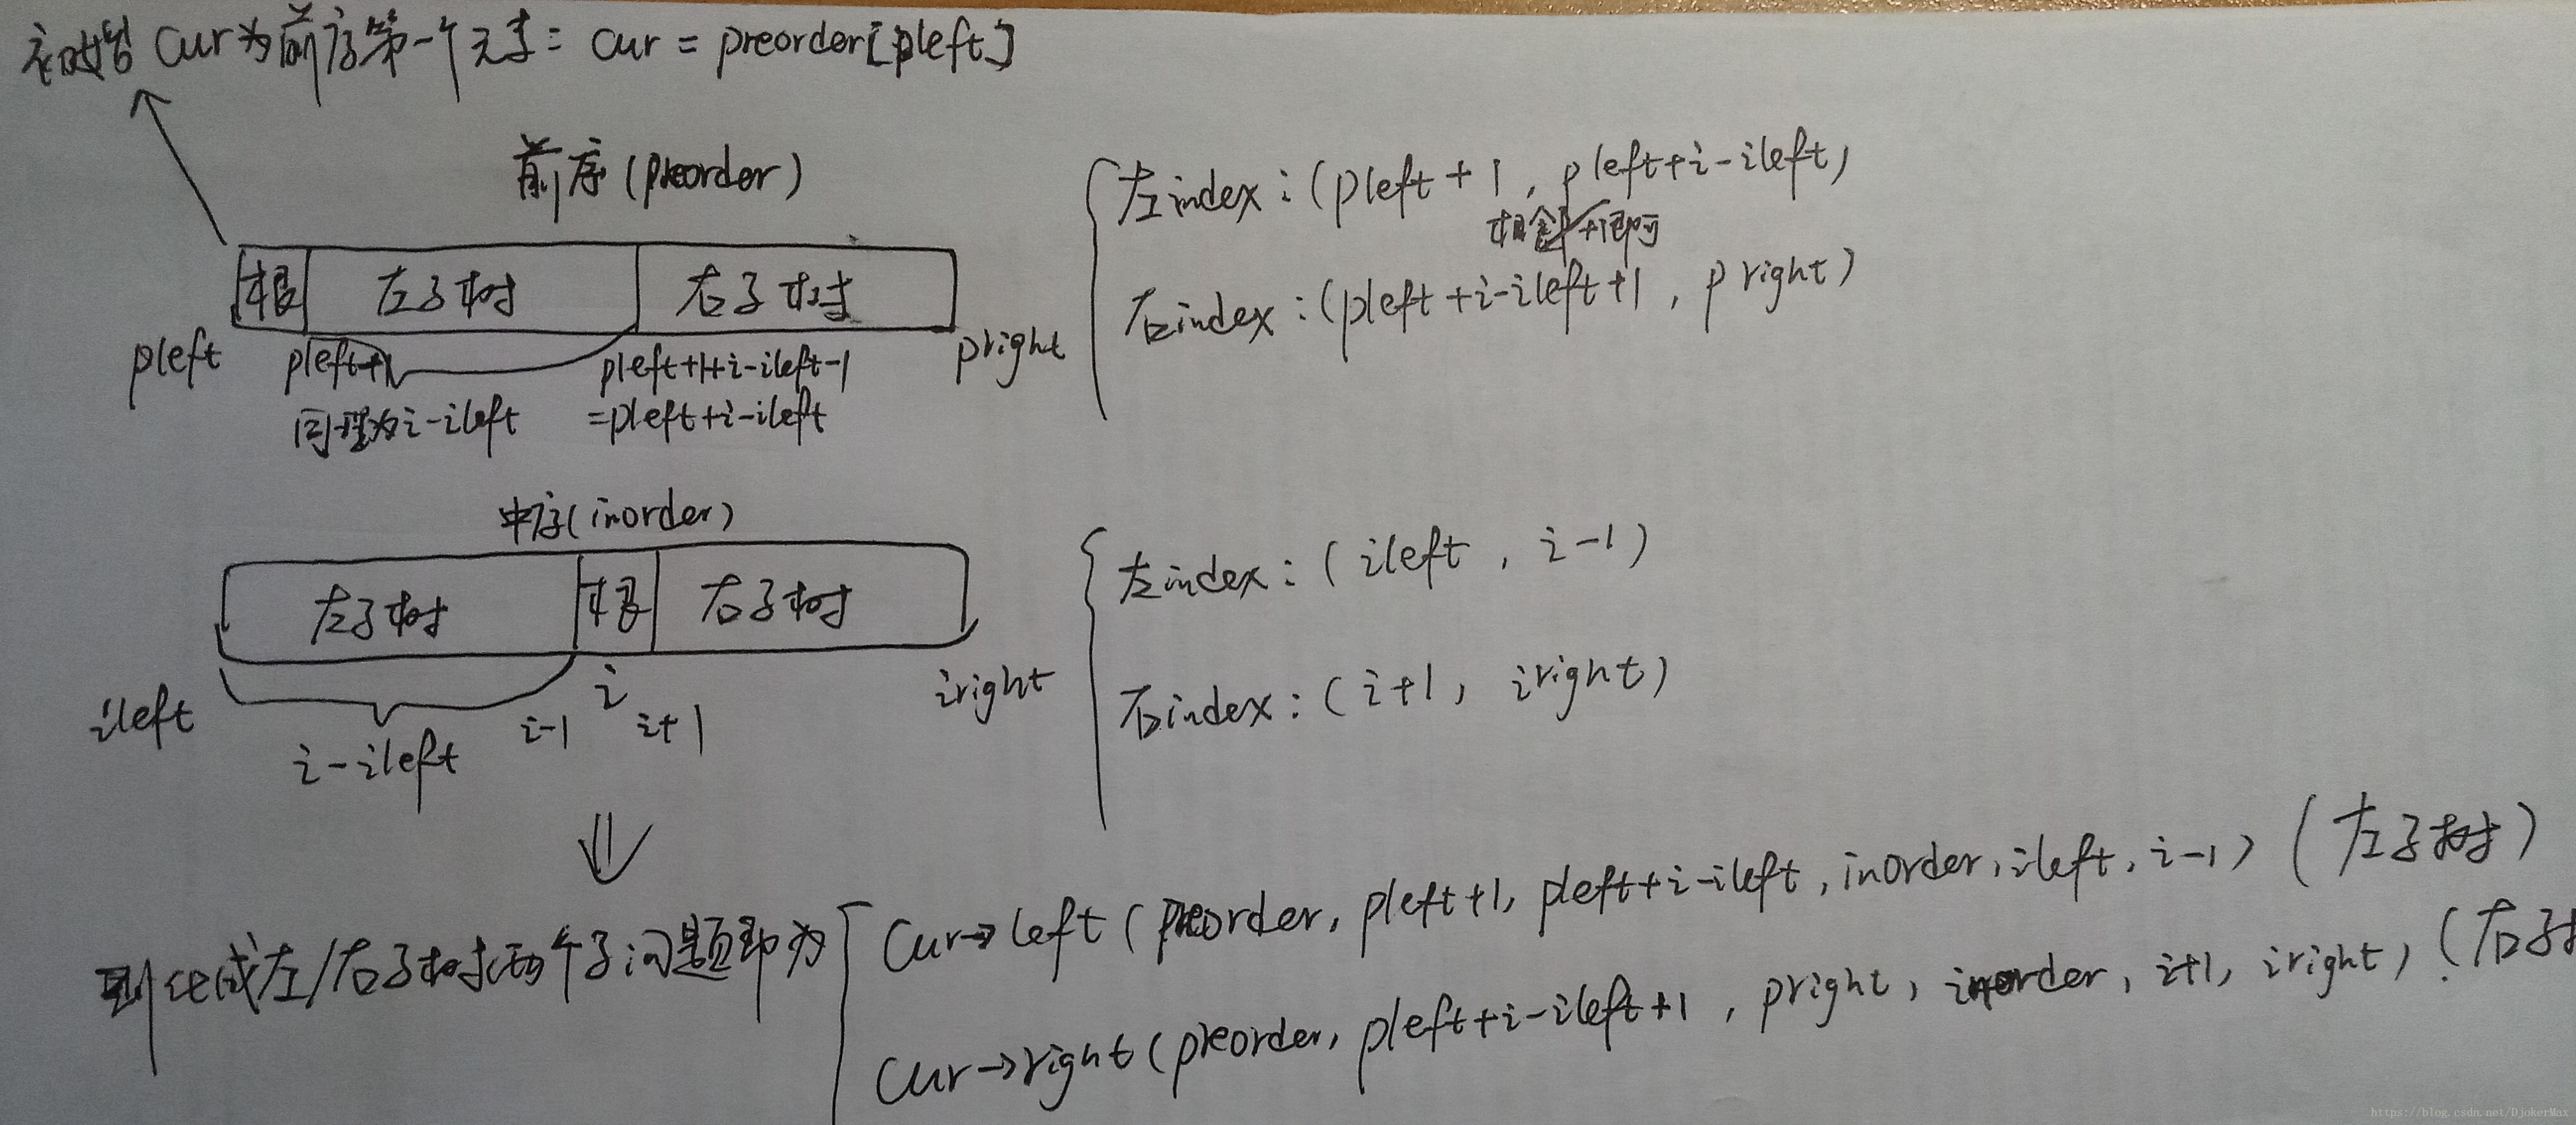 初始 cur为前序第一个元素: cur = preorder[pleft]
前序(preorder)
根 左子树 右子树
pleft pleft+1 pleft+1+i-ileft-1 pright
同理为i-ileft =pleft+i-ileft
左index:(pleft+1, pleft+i-ileft)
相邻+1即可
右index:(pleft+i-ileft+1, pright)
中序(inorder)
左子树 根 右子树
ileft i-1 i i+1 iright
i-ileft
左index:(ileft, i-1)
右index:(i+1, iright)
⇓
则化成左/右子树两个子问题即为
cur→left(preorder, pleft+1, pleft+i-ileft, inorder, ileft, i-1)(左子树)
cur→right(preorder, pleft+i-ileft+1, pright, inorder, i+1, iright)(右子
https://blog.csdn.net/DjokerMax